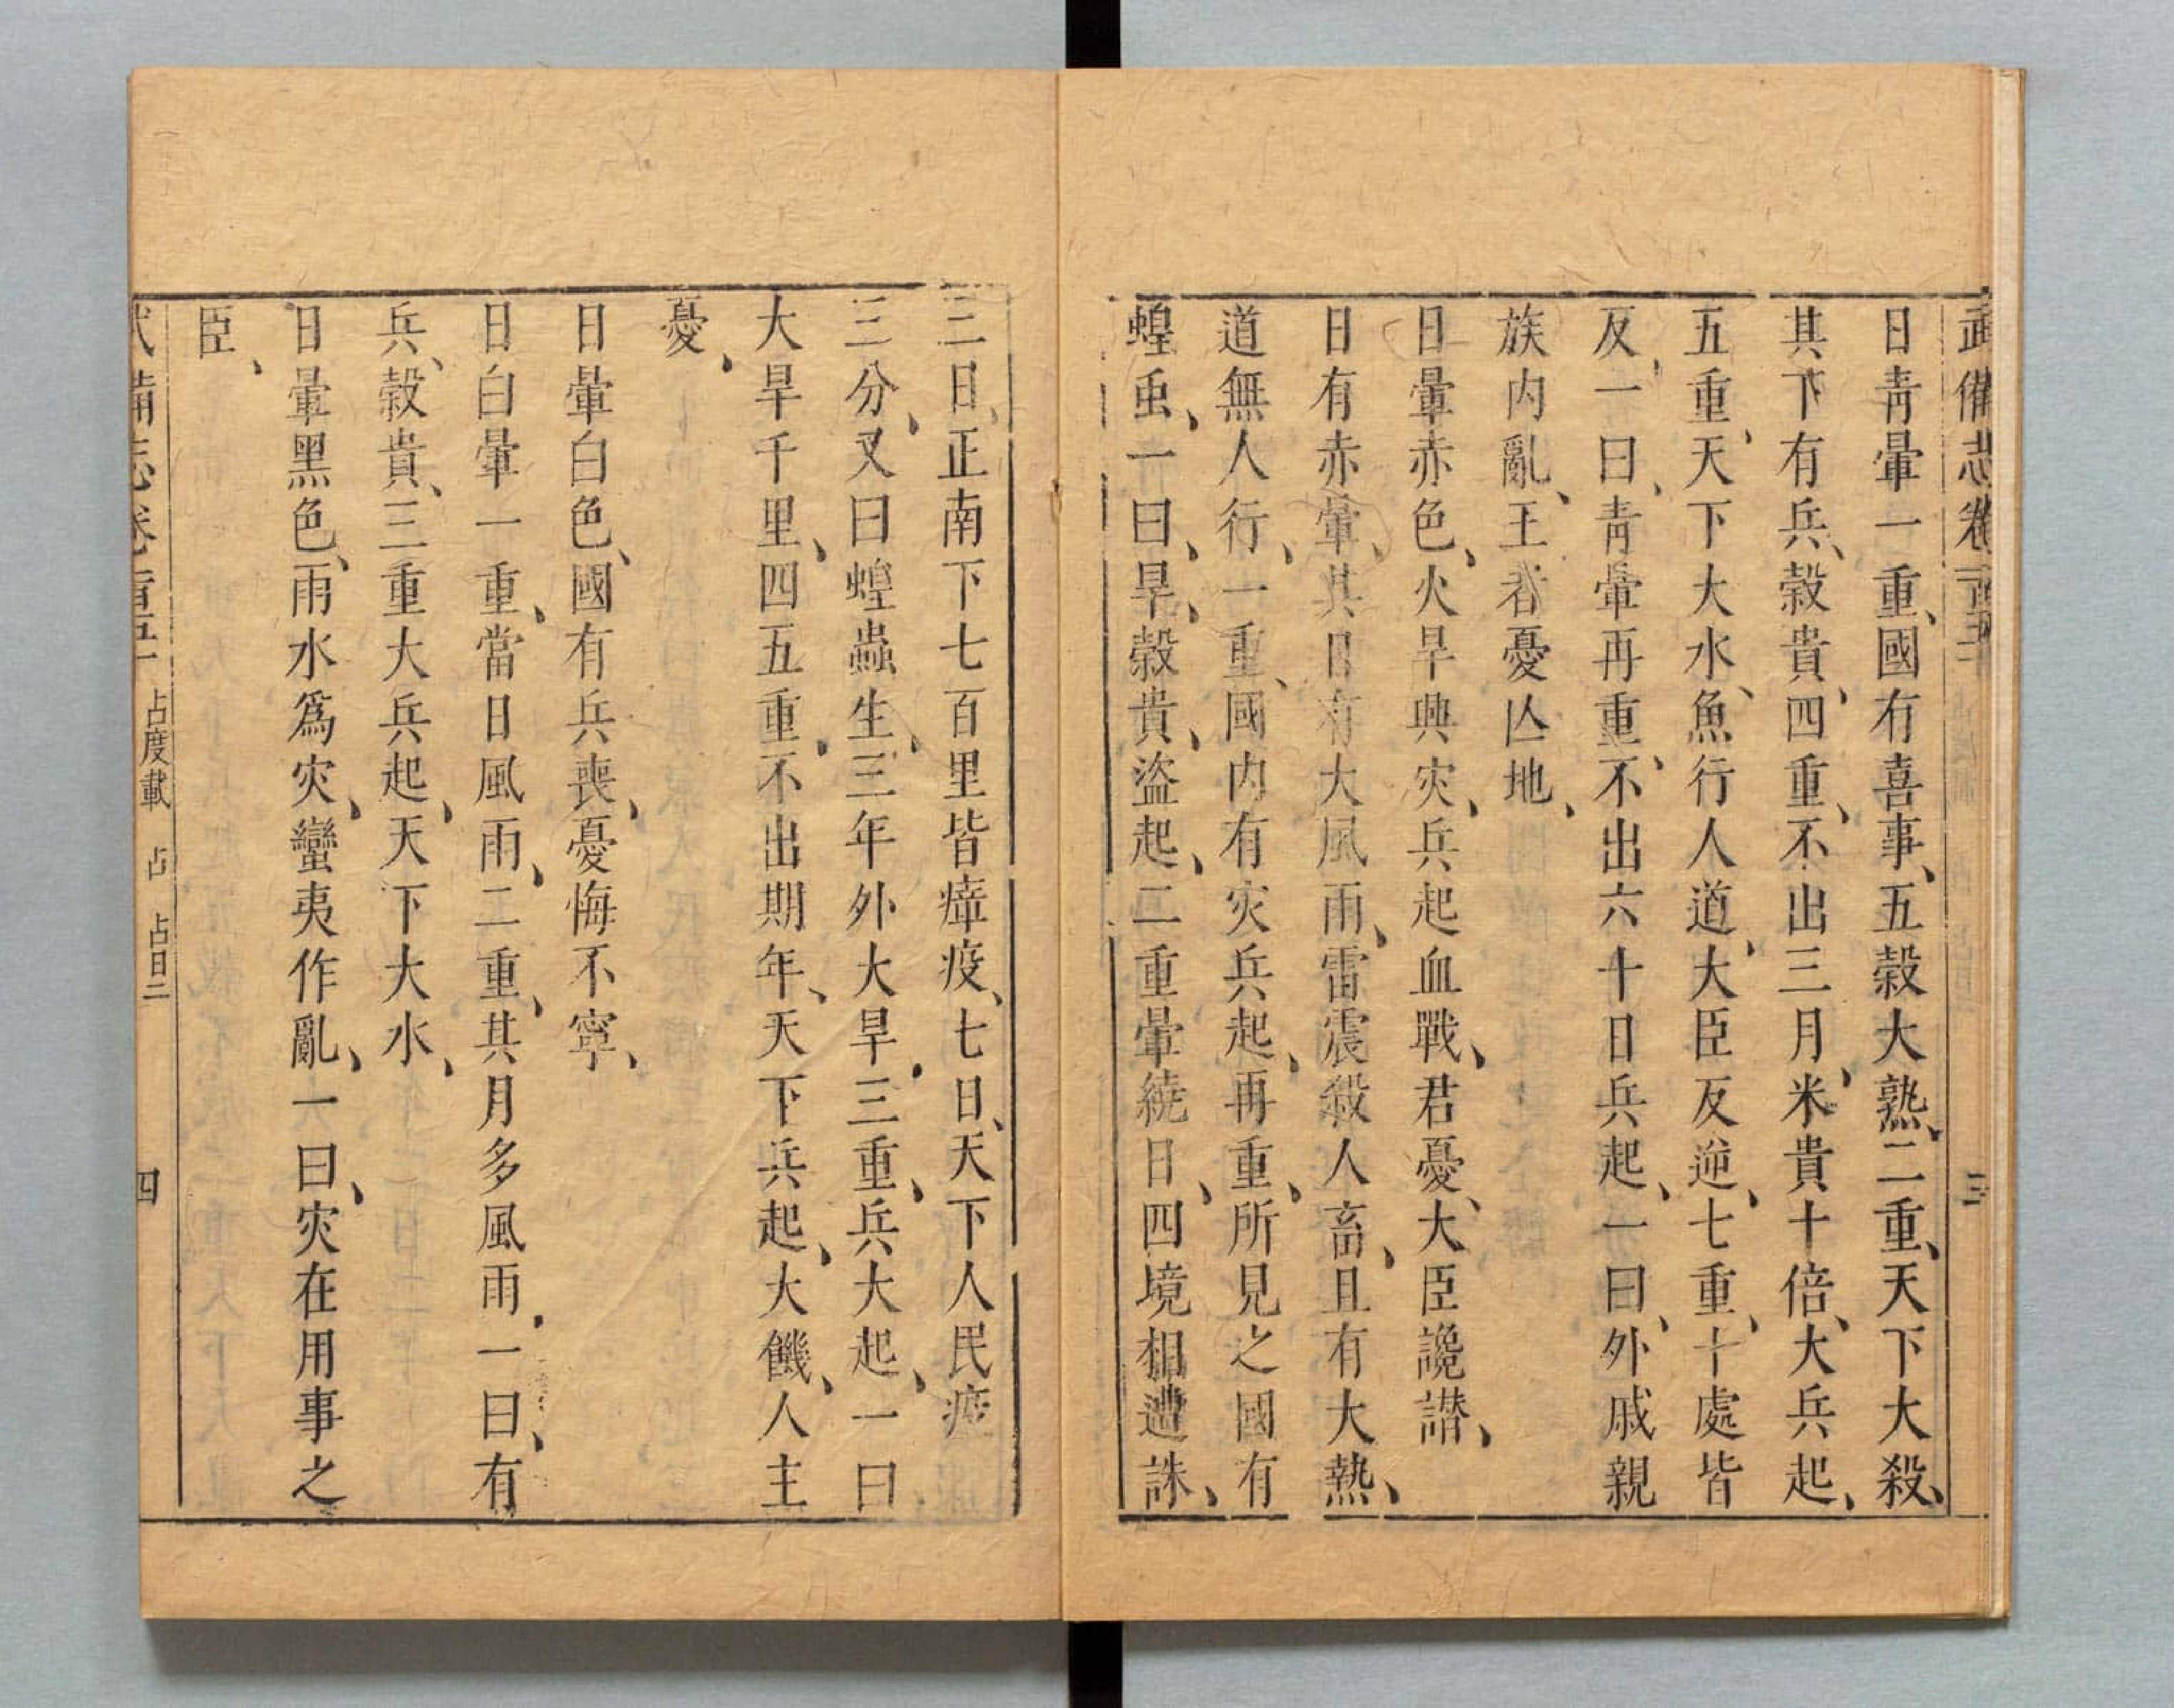 武備志卷
三
日靑暈一重、國有喜事、五穀大熟、二重、天下大殺、
其下有兵、穀貴、四重、不出三月、米貴十倍、大兵起、
五重、天下大水、魚行人道、大臣反逆、七重、十處皆
反、一曰、靑暈再重、不出六十日兵起、一曰、外戚親
族内亂、王者憂亾地、
日暈赤色、火旱興灾、兵起血戰、君憂、大臣讒譛、
日有赤暈、其日有大風雨、雷震殺人畜、且有大熱、
道無人行、一重、國内有灾兵起、再重、所見之國有
蝗虫、一曰、旱、穀貴、盗起、二重暈繞日、四境相遭誅、
三日、正南下七百里皆瘴疫、七日、天下人民疫
三分、又曰蝗蟲生、三年外大旱、三重、兵大起、一曰
大旱千里、四五重、不出期年、天下兵起、大饑、人主
憂、
日暈白色、國有兵喪、憂悔不寧、
日白暈一重、當日風雨、二重、其月多風雨、一曰、有
兵、穀貴、三重大兵起、天下大水、
日暈黑色、雨水爲灾、蠻夷作亂、一曰、灾在用事之
臣、
武備志卷一百五一 占度載 占 占日二 四